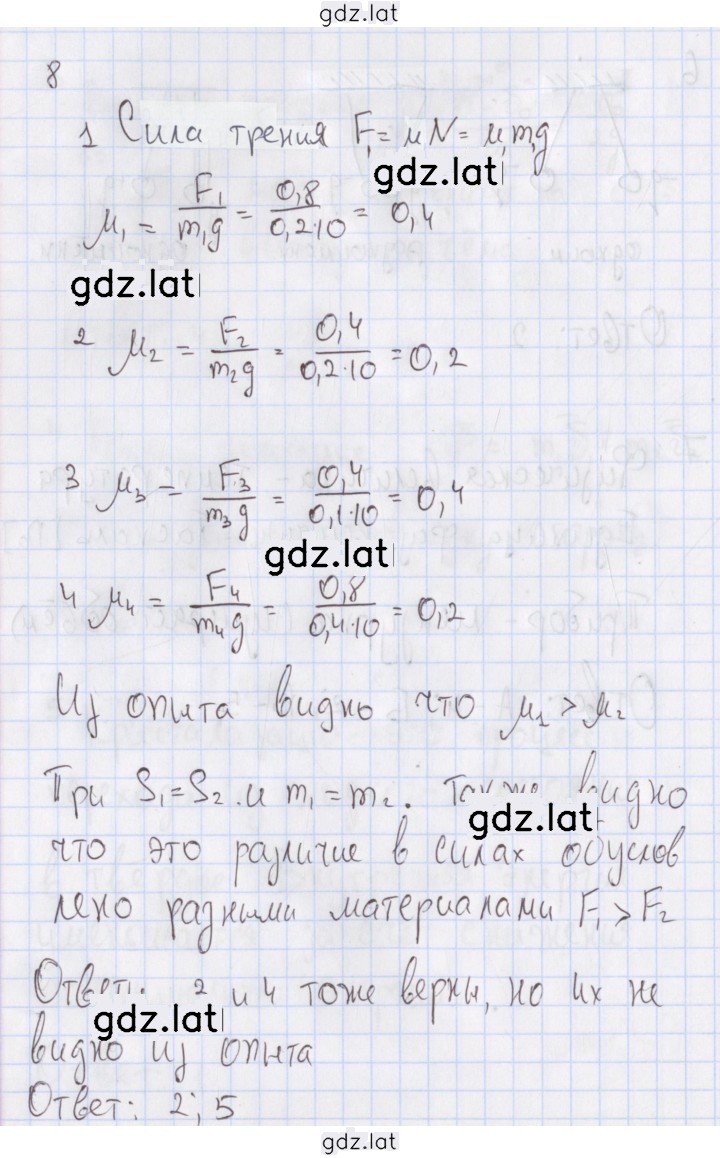 gdz.lat
8
1 Сила трения F₁ = μN = μ₁m₁g
gdz.lat
μ₁ = F₁/m₁g = 0,8/0,2·10 = 0,4
gdz.lat
2 μ₂ = F₂/m₂g = 0,4/0,2·10 = 0,2
3 μ₃ = F₃/m₃g = 0,4/0,1·10 = 0,4
gdz.lat
4 μ₄ = F₄/m₄g = 0,8/0,4·10 = 0,2
Из опыта видно что μ₁ > μ₂
При S₁=S₂ и m₁=m₂. Также видно
gdz.lat
что это различие в силах обуслов
лено разными материалами F₁ > F₂
Ответ. 2 и 4 тоже верны, но их не
gdz.lat
видно из опыта
Ответ: 2; 5
gdz.lat